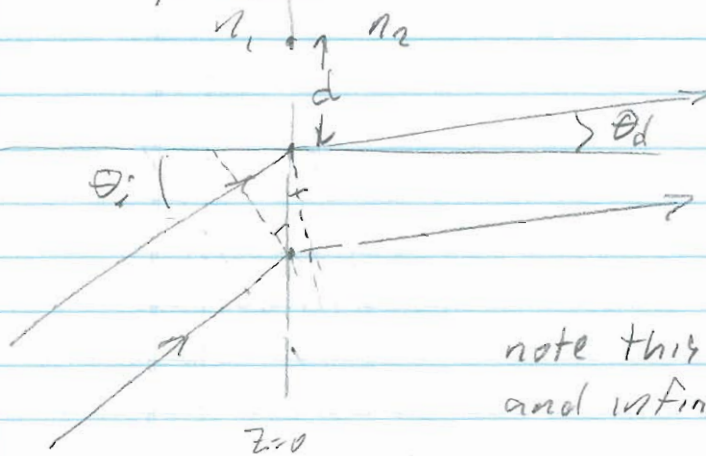 n₁ n₂
d
θd
θi
note this
and infin
z=0